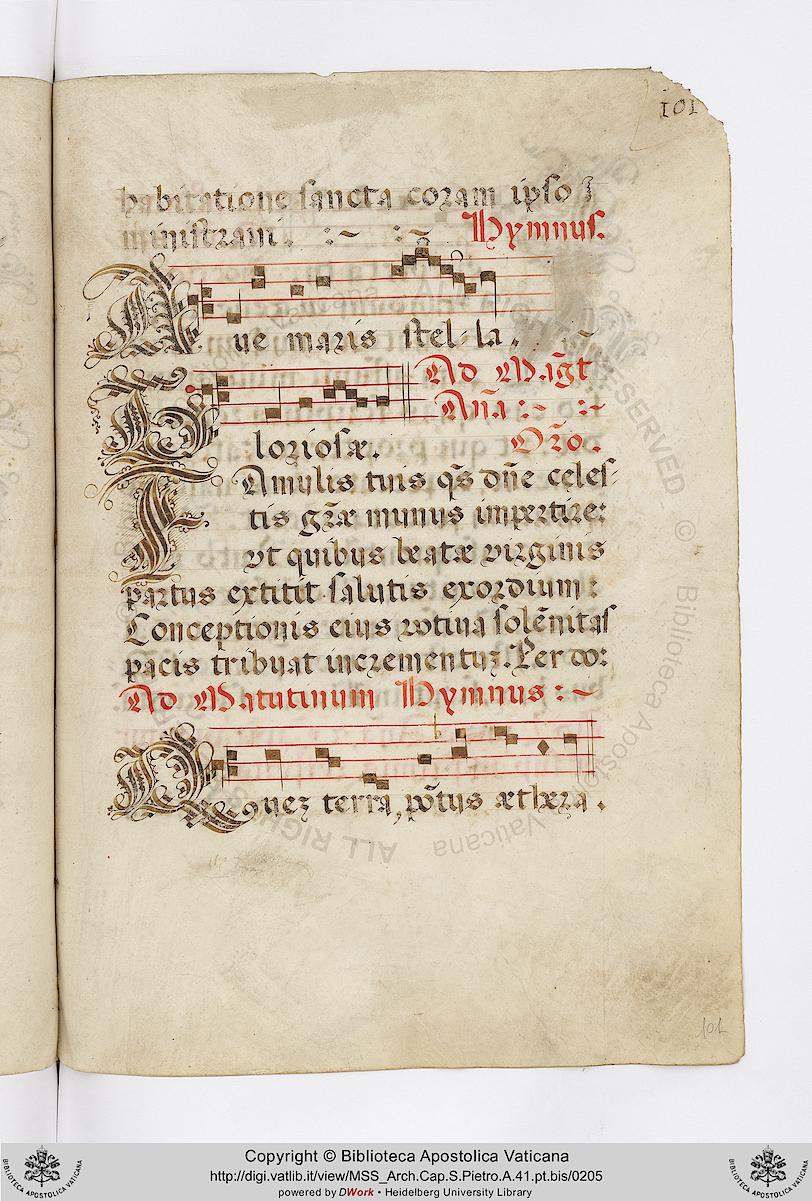 101
habitatione sancta coram ipso
ministravi.
Hymnus.
Ave maris stella.
Ad Magt
Ana
Gloriosæ.
Oro.
Famulis tuis qs dne celes-
tis græ munus impertire:
vt quibus beatæ virginis
partus extitit salutis exordium:
Conceptionis eius votiva solenitas
pacis tribuat incrementuz. Per do:
Ad Matutinum Hymnus:
Quez terra, potus æthæra.
101
ALL RIGHTS RESERVED © Biblioteca Apostolica Vaticana
Copyright © Biblioteca Apostolica Vaticana
http://digi.vatlib.it/view/MSS_Arch.Cap.S.Pietro.A.41.pt.bis/0205
powered by DWork • Heidelberg University Library
BIBLIOTECA APOSTOLICA VATICANA
BIBLIOTECA APOSTOLICA VATICANA